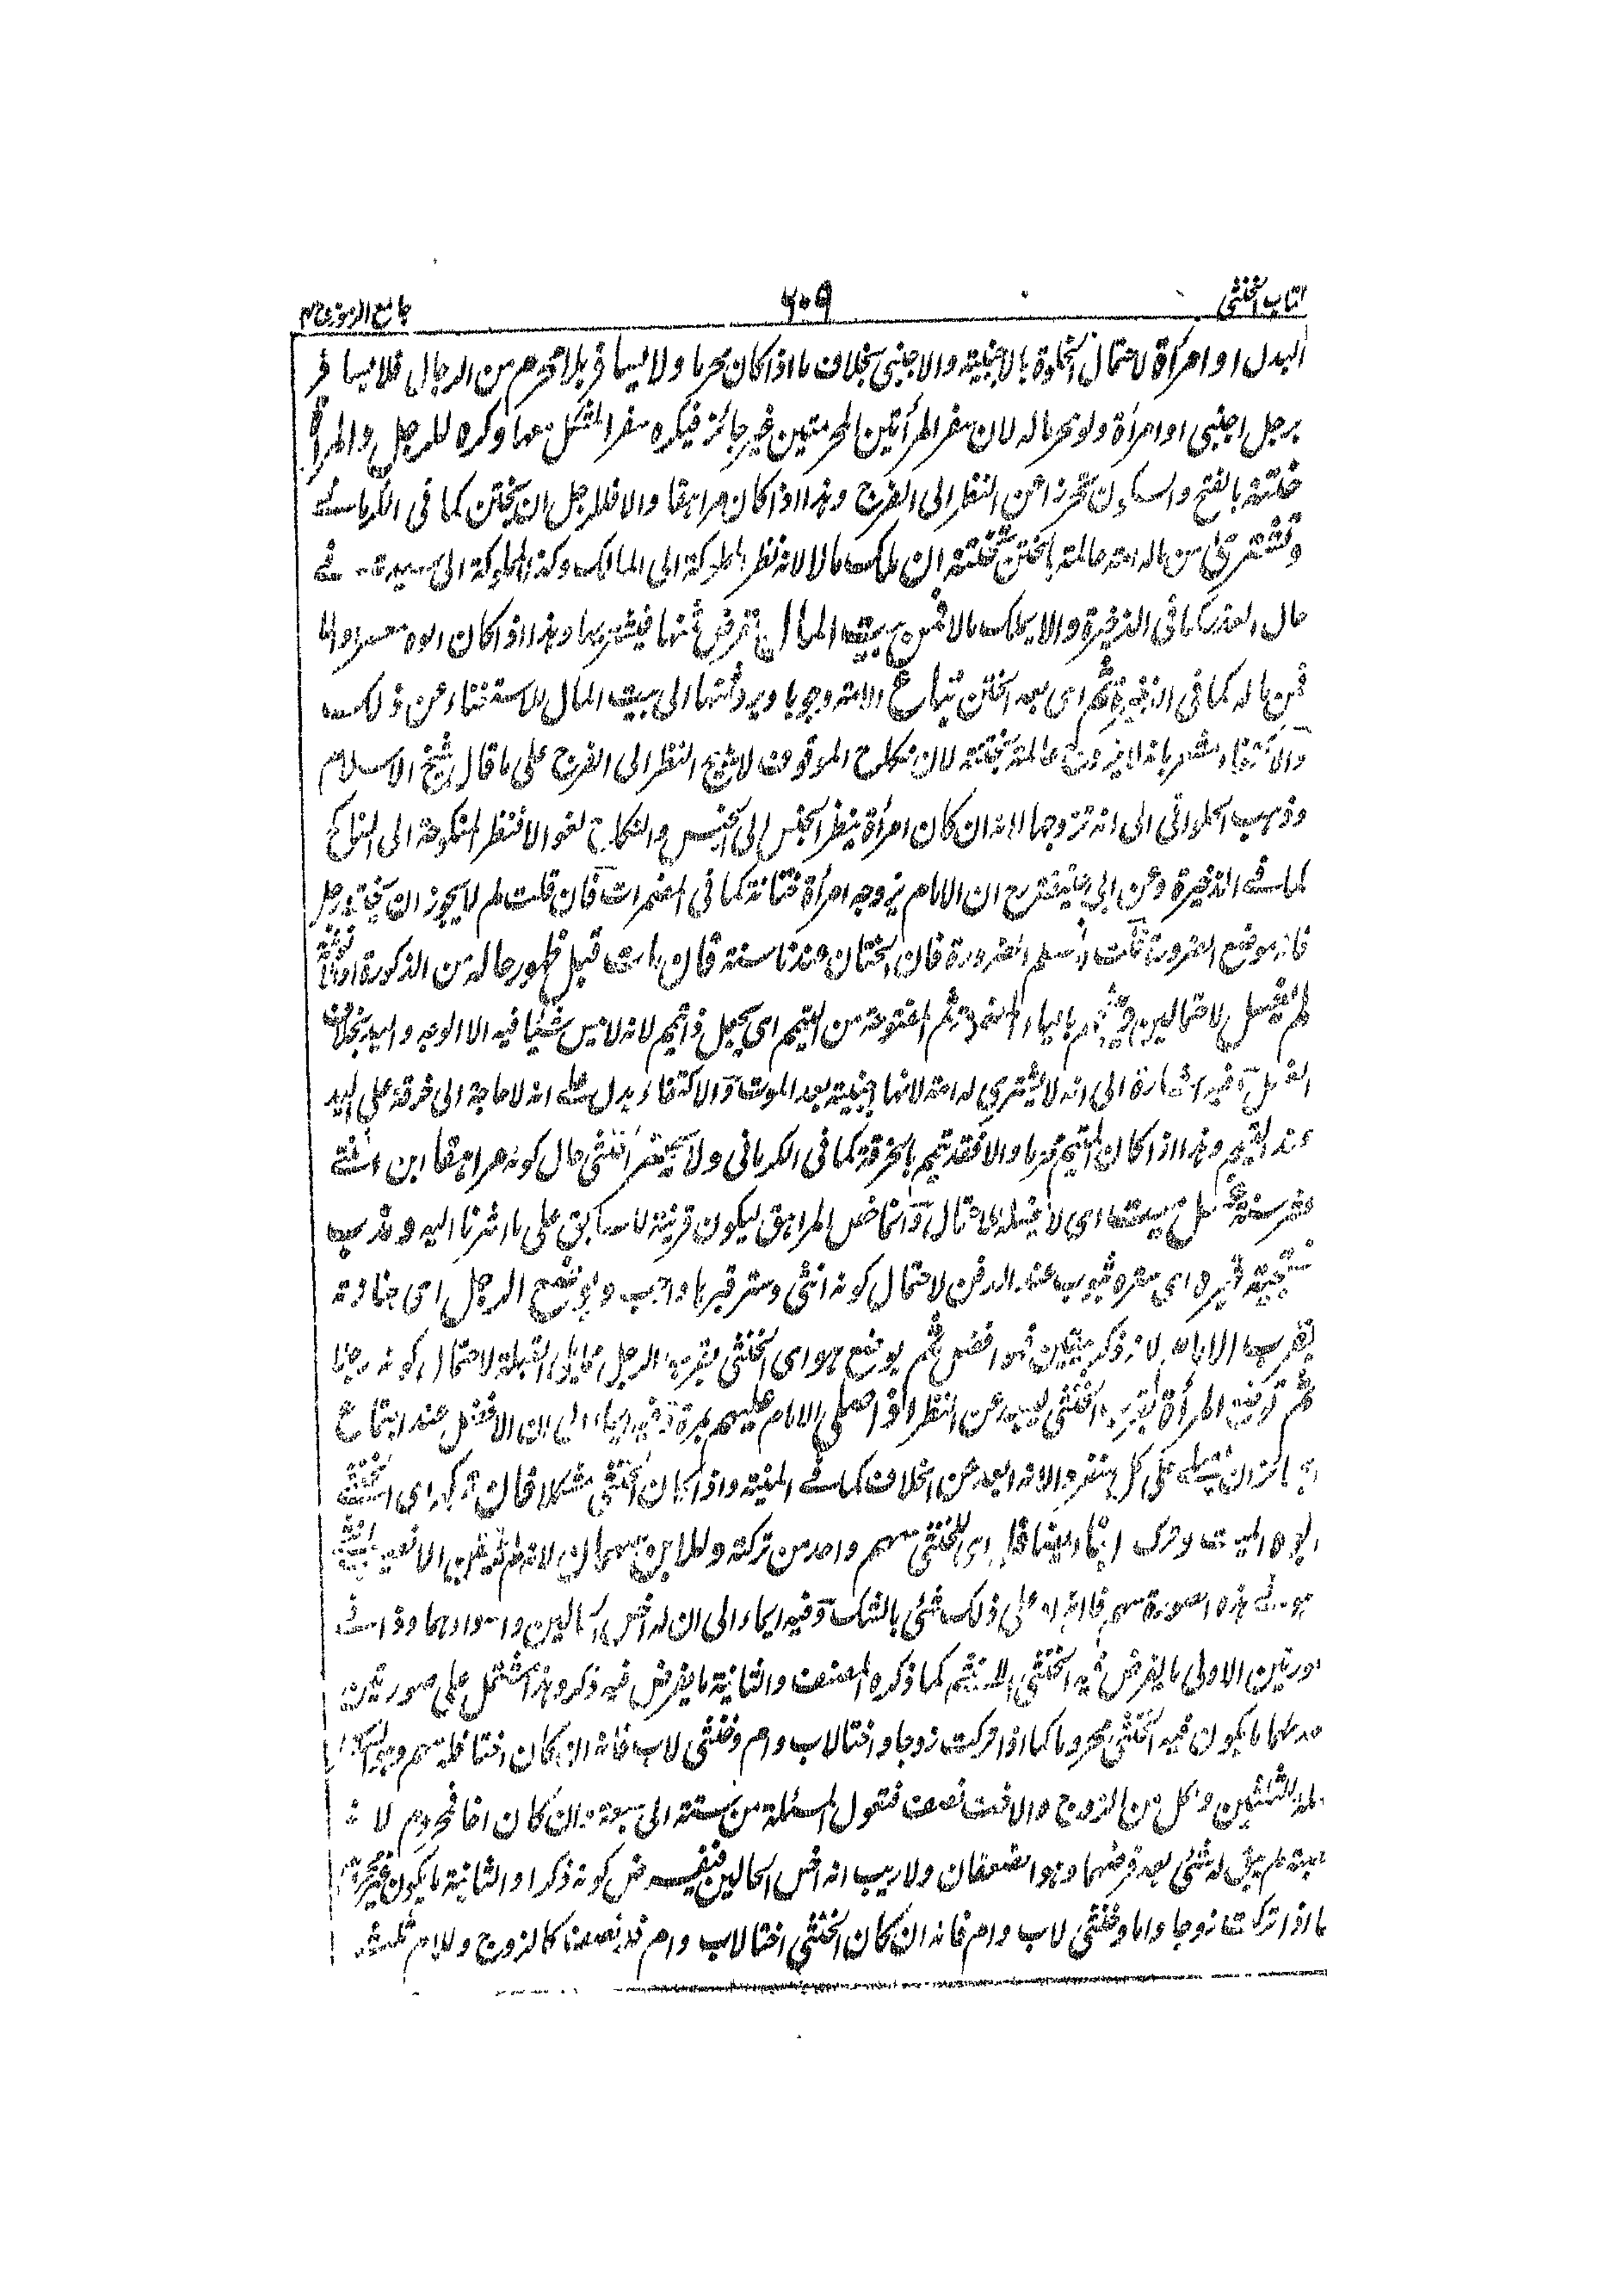 كتاب الخنثى ٦٠٩ جامع الرموز ج٢
البدل او امرأة لاحتمال الخلوة بالاجنبية والاجنبى بخلاف ما اذا كان محرما ولا يسافر بلا محرم من الرجال فلا يسافر
برجل اجنبى او امرأة ولو محرما له لان سفر المرأتين المحرمتين غير جائز فيكره سفر المشكل معها وكره للرجل والمرأة
ختنه بالفتح والسكون تحرزا عن النظر الى الفرج وهذا اذا كان مراهقا والا فللرجل ان يختن كما فى الكرمانے
وتشترى من ماله امة عالمة بالختن تختنه ان ملك مالا لانه نظر المملوكة الى المالك وكذا المملوكة الى سيدته فے
حال العذر كما فى الذخيرة والا يملك مالا فمن بيت المال يقرض ثمنها فيشتريها وهذا اذا كان ابوه معسرا والا
فمن ماله كما فى الذخيرة ثم اى بعد الختن تباع الامة وجوبا ويرد ثمنها الى بيت المال للاستغناء عن ذلك
والاكتفاء مشعر بانه لا يزوج عالمة تختنه لان نكاح الموقوف لا يبيح النظر الى الفرج على ما قال شيخ الاسلام
وذهب الحلوانى الى انه تزوجها لانه ان كان امرأة ينظر الجنس الى الجنس والنكاح لغو والا فنظر المنكوحة الى الناكح
كما فے الذخيرة وعن ابى حنيفة رح ان الامام يزوجه امرأة ختانة كما فى المضمرات فان قلت لم لا يجوز ان يختنه رجل
فانه موضع الضرورة قلت لا نسلم الضرورة فان الختان عندنا سنة فان مات قبل ظهور حاله من الذكورة او الانوثة
لم يغسل لاحتمالين ويتيمم بالياء المضمومة ثم المفتوحة من التيمم اى يجعل ذا تيمم لانه لا يمس شيئا فيه الا الوجه واليد بخلاف
الغسل وفيه اشارة الى انه لا يشترى له امة لانها اجنبية بعد الموت والاكتفاء يدل علے انه لا حاجة الى خرقة على اليد
عند التيمم وهذا اذا كان المتيمم محرما والا فقد تيمم بالخرقة كما فى الكرمانى ولا يحضر الخنثى حال كونه مراهقا ابن اثنتے
عشر سنة غسل ميت اى لا يغسله لاحتمال وانما خص المراهق ليكون قرينة لما سبق على ما اشرنا اليه وندب
تسجية قبره اى ستره بثوب عند الدفن لاحتمال كونه انثى وستر قبرها واجب ويوضع الرجل اى جنازته
بقرب الامام لانه ذكر بيقين فهو افضل ثم يوضع هو اى الخنثى بقرب الرجل مما يلى القبلة لاحتمال كونه رجلا
ثم توضع المرأة بقرب الخنثى لبعد عن النظر اذا صلى الامام عليهم مرة وفيه ايماء الى ان الافضل عند اجتماع
الجنائز ان يصلے على كل منفردا لانه ابعد عن الخلاف كما فے المنية واذا كان الخنثى مشكلا فان تركه اى الخنثے
ابوه الميت وترك ابنا ايضا فله اى للخنثى سهم واحد من تركته وللابن سهمان لانه
هو فے هذه الصورة سهم فلا يزاد على ذلك شئ بالشك وفيه ايماء الى ان له اخس الحالين واسوأهما وذا فے
صورتين الاولى ما يفرض فيه الخنثى كما ذكره المصنف والثانية ما يفرض فيه ذكر وهذا يشتمل على صورتين
احدهما ما يكون فيه الخنثى محروما كما اذا تركت زوجا واختا لاب وام وخنثى لاب فانه ان كان اختا فله سهم
تكملة للثلثين ولكل من الزوج والاخت نصف فتعول المسئلة من ستة الى سبعة وان كان اخا فمحروم لانه
عصبة لم يبق له شئ بعد فرضهما وهو النصفان ولا ريب انه اخس الحالين فيفرض كونه ذكرا والثانية ما يكون فيه
ما اذا تركت زوجا واما وخنثى لاب وام فانه ان كان الخنثى اختا لاب وام فله نصف كالزوج وللام ثلث